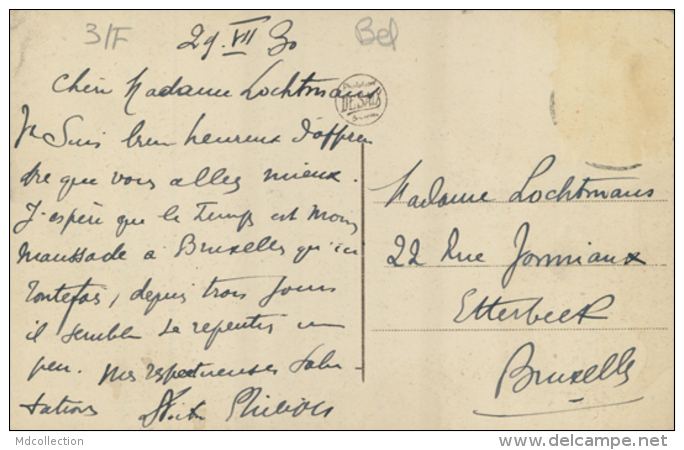 3/F
29. VII 30
Bel
Chère Madame Lochtmans
Je suis bien heureux d'appren
dre que vous allez mieux.
J'espère que le temps est moins
maussade à Bruxelles qu'ici
Toutefois, depuis trois jours
il semble se repentir un
peu. Mes respectueuses salu-
tations
DESAIX
Madame Lochtmans
22 Rue
Etterbeek
Bruxelles
Mdcollection
www.delcampe.net